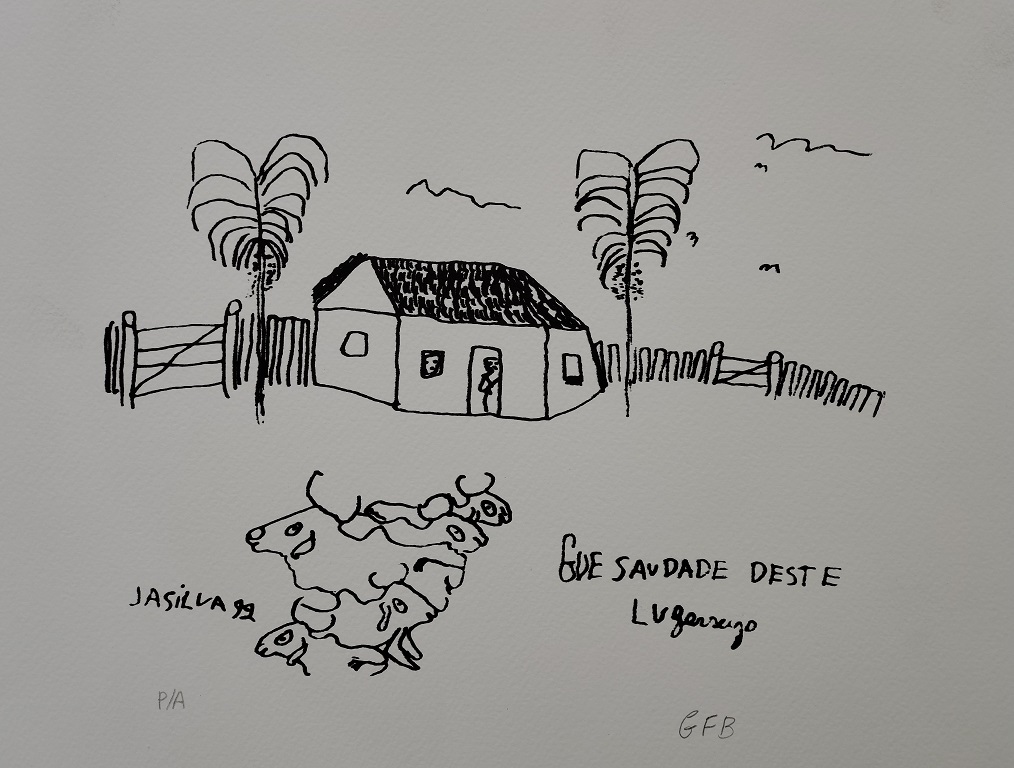 JASILVA 92
GUE SAUDADE DESTE
LUgarzego
P/A
GFB